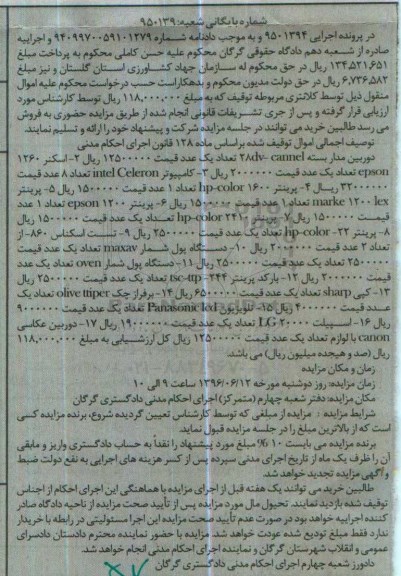 شماره بایگانی شعبه: ۹۵۰۱۳۹
در پرونده اجرایی ۹۵۰۱۳۹۴ و به موجب دادنامه شماره ۹۴۰۹۹۷۰۰۵۹۱۰۱۲۷۹ و اجراییه
صادره از شعبه دهم دادگاه حقوقی گرگان محکوم علیه حسن کاملی محکوم به پرداخت مبلغ
۱۳۴,۵۲۱,۶۵۱ ریال در حق محکوم له سازمان جهاد کشاورزی استان گلستان و نیز مبلغ
۶,۷۳۶,۵۸۲ ریال در حق دولت مدیون محکوم و بدهکار است حسب درخواست محکوم علیه اموال
منقول ذیل توسط کلانتری مربوطه توقیف که به مبلغ ۱۱۸,۰۰۰,۰۰۰ ریال توسط کارشناس مورد
ارزیابی قرار گرفته و پس از جری تشریفات قانونی انجام شده از طریق مزایده حضوری به فروش
می رسد طالبین خرید می توانند در جلسه مزایده شرکت و پیشنهاد خود را ارائه و تسلیم نمایند.
توصیف اجمالی اموال توقیف شده براساس ماده ۱۲۸ قانون اجرای احکام مدنی
دوربین مدار بسته ۲۸dv- cannel تعداد یک عدد قیمت ۱۲۵۰۰۰۰۰ ریال ۲- اسکنر ۱۲۶۰
epson تعداد یک عدد قیمت ۲۰۰۰۰۰۰ ریال ۳- کامپیوتر intel Celeron تعداد ۸ عدد قیمت
۳۲۰۰۰۰۰۰ ریال ۴- پرینتر ۱۶۰۰ hp-color تعداد ۱ عدد قیمت ۱۵۰۰۰۰۰ ریال ۵- پرینتر
marke ۱۲۰۰ lex تعداد ۱ عدد قیمت ۱۵۰۰۰۰۰ ریال ۶- پرینتر ۱۲۰۰ epson تعداد ۱ عدد
قیمت ۱۵۰۰۰۰۰ ریال ۷- پرینتر ۲۴۱ hp-color تعداد یک عدد قیمت ۱۵۰۰۰۰۰ ریال
۸- پرینتر ۲۲- hp-color تعداد یک عدد قیمت ۲۵۰۰۰۰۰ ریال ۹- تست اسکناس ۸۶۰- از
تعداد ۲ عدد قیمت ۲۰۰۰۰۰۰ ریال ۱۰- دستگاه پول شمار maxav تعداد یک عدد قیمت
۲۵۰۰۰۰۰ تعداد یک عدد قیمت ۲۵۰۰۰۰۰ ریال ۱۱- دستگاه پول شمار oven تعداد یک عدد
قیمت ۲۰۰۰۰۰۰ ریال ۱۲- بارکد پرینتر tsc-ttp-۲۴۴ تعداد یک عدد قیمت ۲۵۰۰۰۰۰ ریال
۱۳- کپی sharp تعداد یک عدد قیمت ۶۵۰۰۰۰۰ ریال ۱۴- برفراز چک olive ttiper تعداد یک
عدد قیمت ۴۰۰۰۰۰۰ ریال ۱۵- تلویزیون Panasonic lcd تعداد یک عدد قیمت ۹۰۰۰۰۰۰
ریال ۱۶- اسپیلت LG ۲۰۰۰۰ تعداد یک عدد قیمت ۱۹۰۰۰۰۰۰ ریال ۱۷- دوربین عکاسی
canon با لوازم تعداد یک عدد قیمت ۱۲۵۰۰۰۰۰ ریال کل ارزشیابی به مبلغ ۱۱۸,۰۰۰,۰۰۰
ریال (صد و هیجده میلیون ریال) می باشد.
زمان و مکان مزایده
زمان مزایده: روز دوشنبه مورخه ۱۳۹۶/۰۶/۱۲ ساعت ۹ الی ۱۰
مکان مزایده: دفتر شعبه چهارم (متمرکز) اجرای احکام مدنی دادگستری گرگان
شرایط مزایده : مزایده از مبلغی که توسط کارشناس تعیین گردیده شروع، برنده مزایده کسی
است که از بالاترین مبلغ را در جلسه مزایده قبول نماید.
برنده مزایده می بایست ۱۰ % مبلغ مورد پیشنهاد را نقداً به حساب دادگستری واریز و مابقی
آن را ظرف یک ماه از تاریخ اجرای مدنی سپرده پس از کسر هزینه های اجرایی به نفع دولت ضبط
و آگهی مزایده تجدید خواهد شد.
طالبین خرید می توانند یک هفته قبل از اجرای مزایده با هماهنگی این اجرای احکام از اجناس
توقیف شده بازدید نمایند. تحویل مال مورد مزایده پس از تأیید صحت مزایده از ناحیه دادگاه صادر
کننده اجراییه خواهد بود در صورت عدم تأیید صحت مزایده این اجرا مسئولیتی در رابطه با خریدار
ندارد فقط مبلغ تودیع شده عودت خواهد شد. مزایده با حضور نماینده محترم دادستان دادسرای
عمومی و انقلاب شهرستان گرگان و نماینده اجرای احکام مدنی انجام خواهد شد.
دادورز شعبه چهارم اجرای احکام مدنی دادگستری گرگان